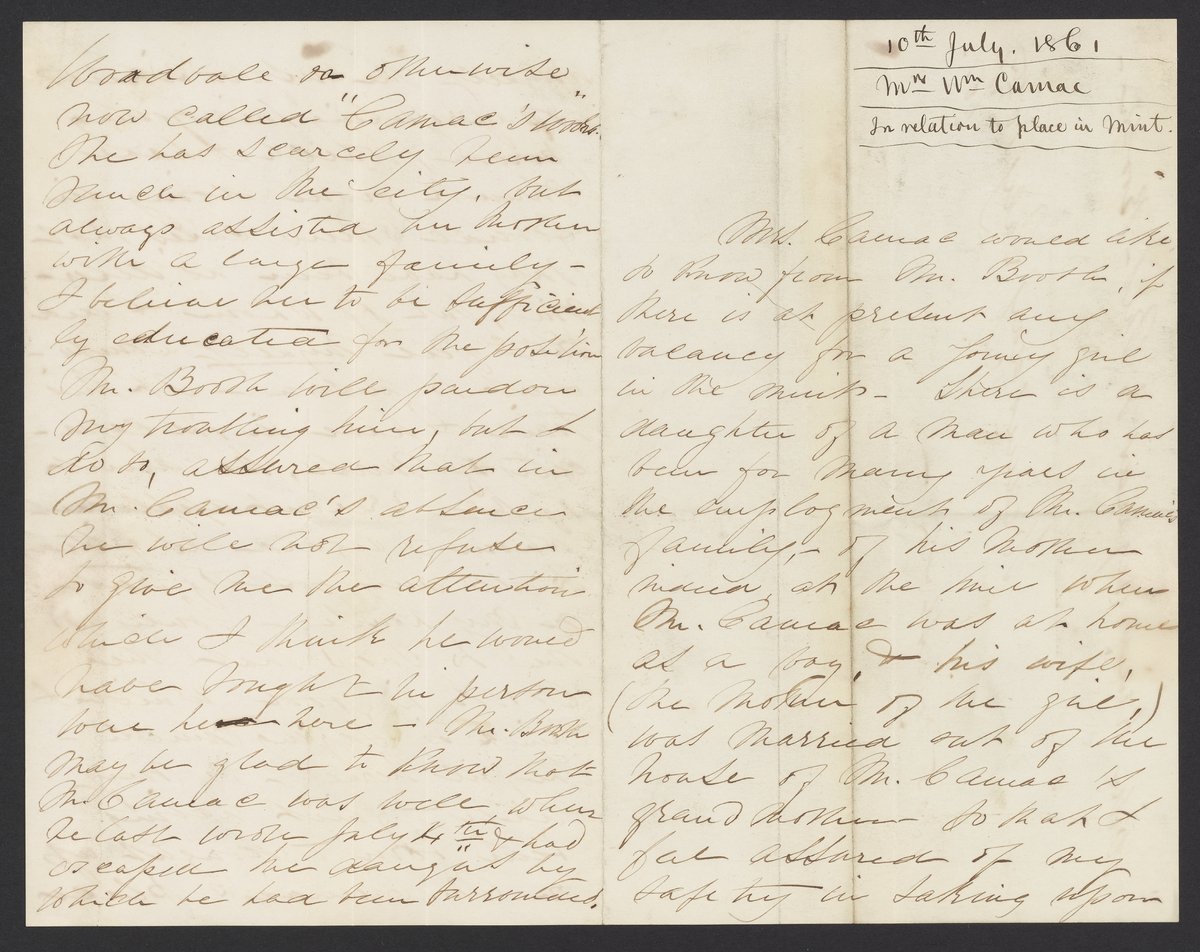 10th July. 1861
Mrs Wm Camac
In relation to place in Mint.
Mrs. Camac would like
to know from Mr. Booth, if
there is at present any
vacancy for a young girl
in the mint - There is a
daughter of a man who has
been for many years in
the employment of Mr. Camac's
family, - of his mother
indeed, at the time when
Mr. Camac was at home
as a boy, & his wife,
(the mother of the girl,)
was married out of the
house of Mr. Camac's
grandmother - So that I
feel assured of my
safety in taking upon
Woodvale or otherwise
now called "Camac's Woods."
She has scarcely been
much in the city, but
always assisted her mother
with a large family -
I believe her to be sufficient
ly educated for the position
Mr. Booth will pardon
my troubling him, but I
do so, assured that in
Mr. Camac's absence
he will not refuse
to give me the attention
which I think he would
have sought in person
were he here - Mr. Booth
may be glad to know that
Mr Camac was well when
he last wrote July 4th & had
escaped the dangers by
which he had been surrounded.